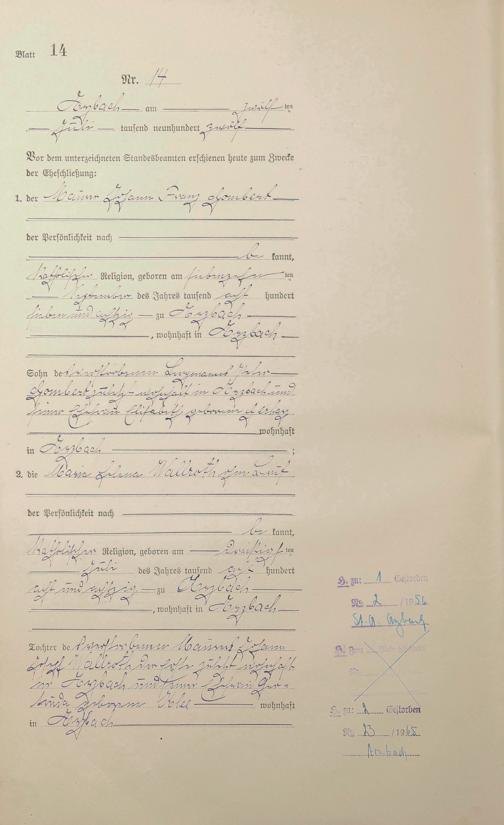 Blatt 14
Nr. 14
Arzbach am zwölf ten
Juli tausend neunhundert zwölf
Vor dem unterzeichneten Standesbeamten erschienen heute zum Zwecke
der Eheschließung:
1. der Maurer Johann Franz Gombert
der Persönlichkeit nach
be kannt,
katholischer Religion, geboren am siebenzehn ten
September des Jahres tausend acht hundert
sieben und achtzig zu Arzbach
, wohnhaft in Arzbach
Sohn des verstorbenen Bergmanns
Gombert zuletzt wohnhaft in Arzbach und
seiner Ehefrau Elisabeth geborenen
wohnhaft
in Arzbach ;
2. die Maria Helena Wallroth ohne Beruf
der Persönlichkeit nach
be kannt,
katholischer Religion, geboren am dreißig ten
Juli des Jahres tausend acht hundert
acht und achtzig zu Arzbach
, wohnhaft in Arzbach
Tochter des verstorbenen Maurers Johann
Josef Wallroth zuletzt wohnhaft
in Arzbach und seiner Ehefrau Ger-
truda geborenen
wohnhaft
in Arzbach
H. zu: 1 Gestorben
No 2 /1956
St. A. Arzbach
H. zu: 2 Gestorben
No 23 /1965
Arzbach